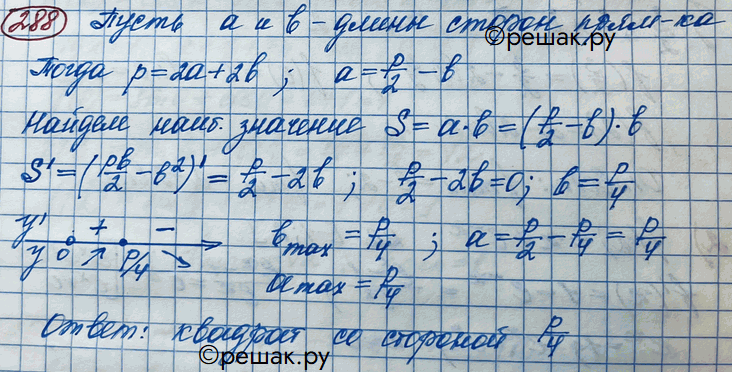 288 Пусть a и b - длины сторон прям-ка
©решак.ру
Тогда p = 2a + 2b ; a = p/2 - b
Найдем наиб. значение S = a·b = (p/2 - b)·b
S' = (pb/2 - b²)' = p/2 - 2b ; p/2 - 2b = 0; b = p/4
y' + -
y 0 ↗ p/4 ↘
b max = p/4 ; a = p/2 - p/4 = p/4
a max = p/4
Ответ: квадрат со стороной p/4
©решак.ру